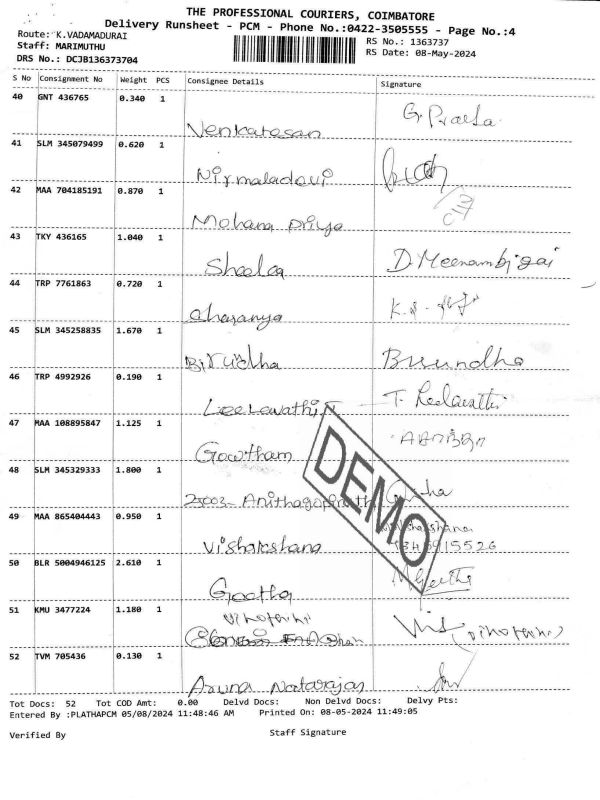 THE PROFESSIONAL COURIERS, COIMBATORE
Delivery Runsheet - PCM - Phone No.:0422-3505555 - Page No.:4
Route: K.VADAMADURAI
Staff: MARIMUTHU
DRS No.: DCJB136373704
RS No.: 1363737
RS Date: 08-May-2024
S No Consignment No Weight PCS Consignee Details Signature
40 GNT 436765 0.340 1
Venkatesan
41 SLM 345079499 0.620 1
Nirmaladevi
42 MAA 704185191 0.870 1
Mohana Priya
43 TKY 436165 1.040 1
Sheela D. Meenambigai
44 TRP 7761863 0.720 1
Charanya
45 SLM 345258835 1.670 1
Birudha Buundha
46 TRP 4992926 0.190 1
Leelavathi T. Leelavathi
47 MAA 108895847 1.125 1
Gowtham
48 SLM 345329333 1.800 1
DEMO
49 MAA 865404443 0.950 1
Vishakshana
50 BLR 5004946125 2.610 1
Geetha M Geetha
51 KMU 3477224 1.180 1
Vinothini (Vinothini)
52 TVM 705436 0.130 1
Aruna Natarajan
Tot Docs: 52 Tot COD Amt: 0.00 Delvd Docs: Non Delvd Docs: Delvy Pts:
Entered By :PLATHAPCM 05/08/2024 11:48:46 AM Printed On: 08-05-2024 11:49:05
Verified By Staff Signature